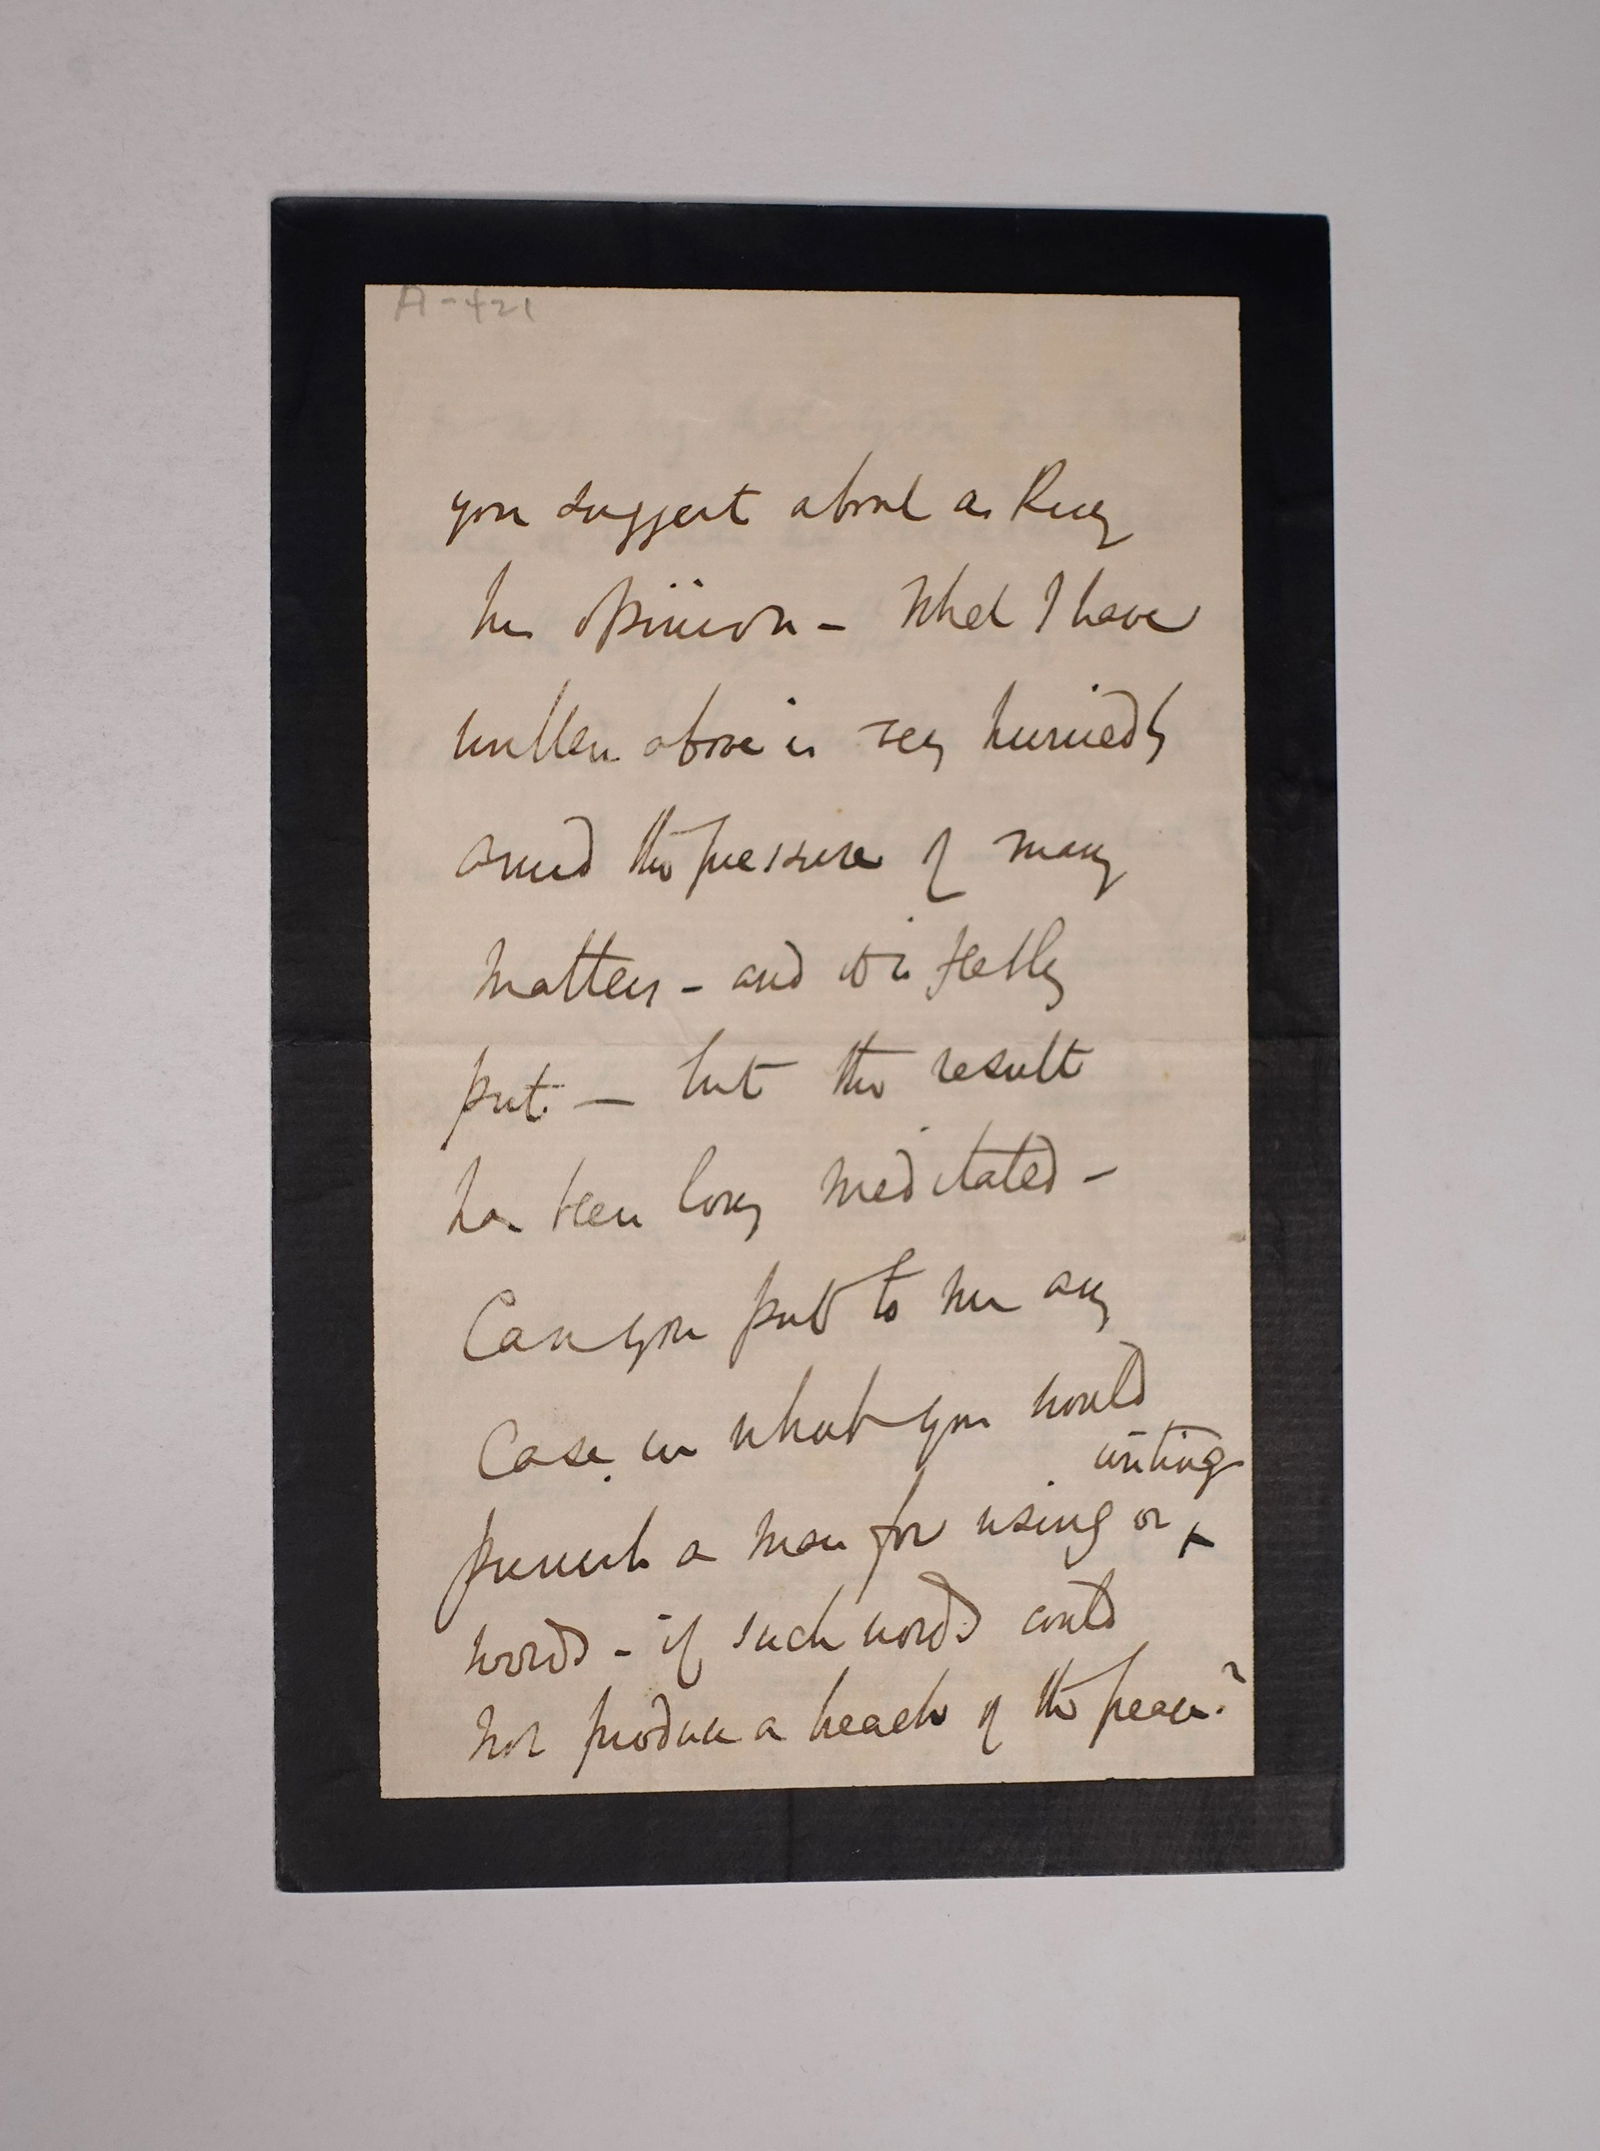 A-421
you suggest about a
his opinion - What I have
written above is very hurriedly
amid the pressure of many
matters - and it is feebly
put. — but the result
has been long meditated -
Can you put to me any
Case in what you would
writing
punish a man for using or ^
words - if such words could
not produce a breach of the peace?